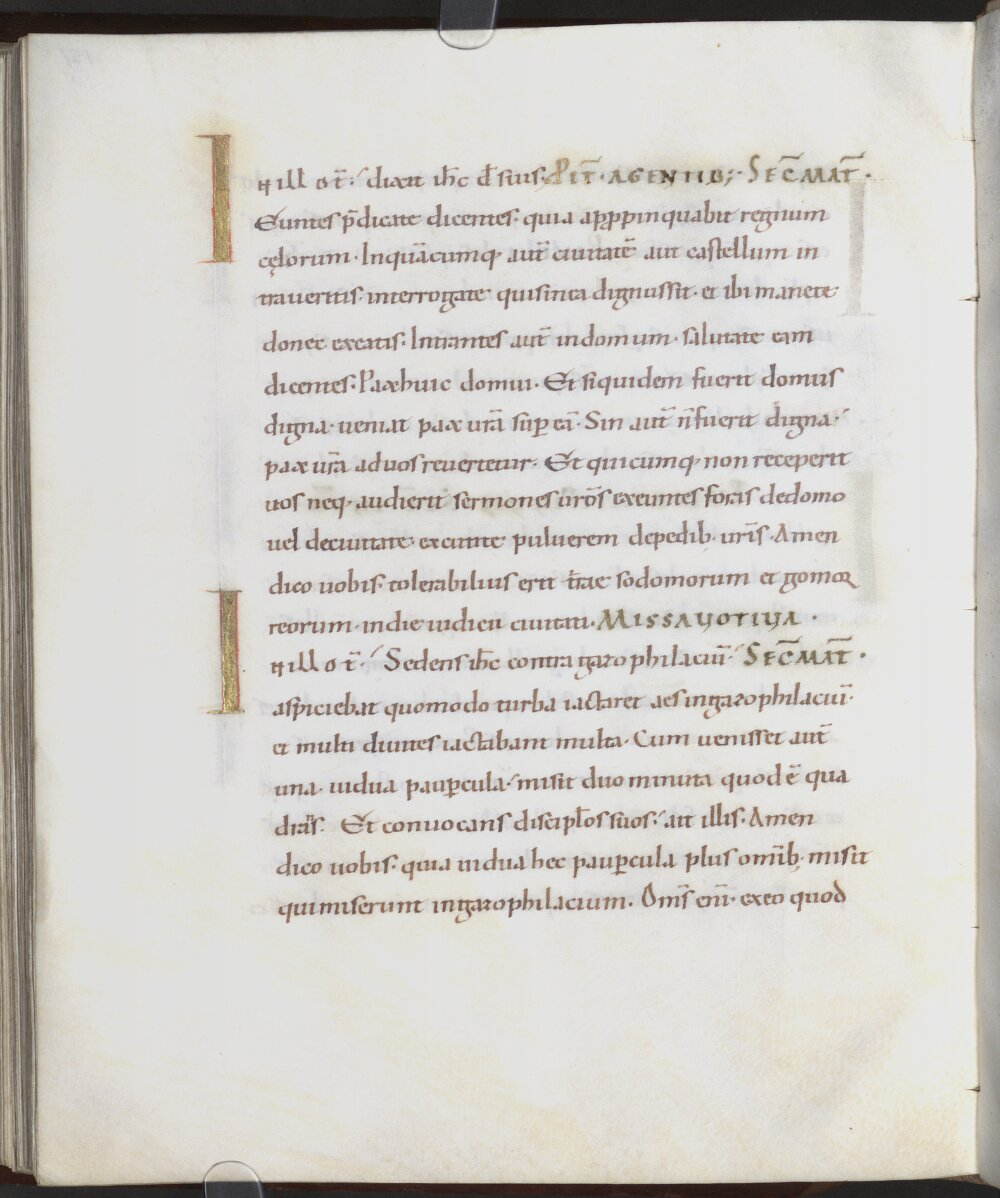 In ill o t̄ · dixit ih̄c d̄ suis · Pit̄ · agentib; · Sec̄ Mat̄ ·
Euntes p̄dicate dicentes · quia appppinquabit regnum
cęlorum · Inquācumq · aut̄ ciuitatē aut castellum in
traueritis · interrogate quisinea dignussit · et ibi manete
donec exeatis · Intrantes aut̄ indomum · salutate eam
dicentes · Paxhuic domui · Et siquidem fuerit domus
digna · ueniat pax ur̄a sup eā · Sin aut̄ n̄ fuerit digna ·
pax ur̄a aduos reuertetur · Et quicumq · non receperit
uos neq · audierit sermones ur̄os exeuntes foras dedomo
uel deciuitate · excutite puluerem depedib · ur̄is · Amen
dico uobis · tolerabilius erit t̄rae sodomorum et gomor
reorum · indie iudicii ciuitati · Missa uotiua ·
In ill o t̄ · Sedens ih̄c contra gazophilaciū · Sec̄ Mat̄ ·
aspiciebat quomodo turba iactaret aes ingazophilaciū ·
et multi diuites iactabant multa · Cum uenisset aut̄
una · uidua paupcula · misit duo minuta quod ē qua
drans̄ · Et conuocans discipl̄os suos · ait illis · Amen
dico uobis · quia uidua hec paupcula plus omīb · misit
qui miserunt ingazophilacium · Om̄s eni̅ · exeo quod